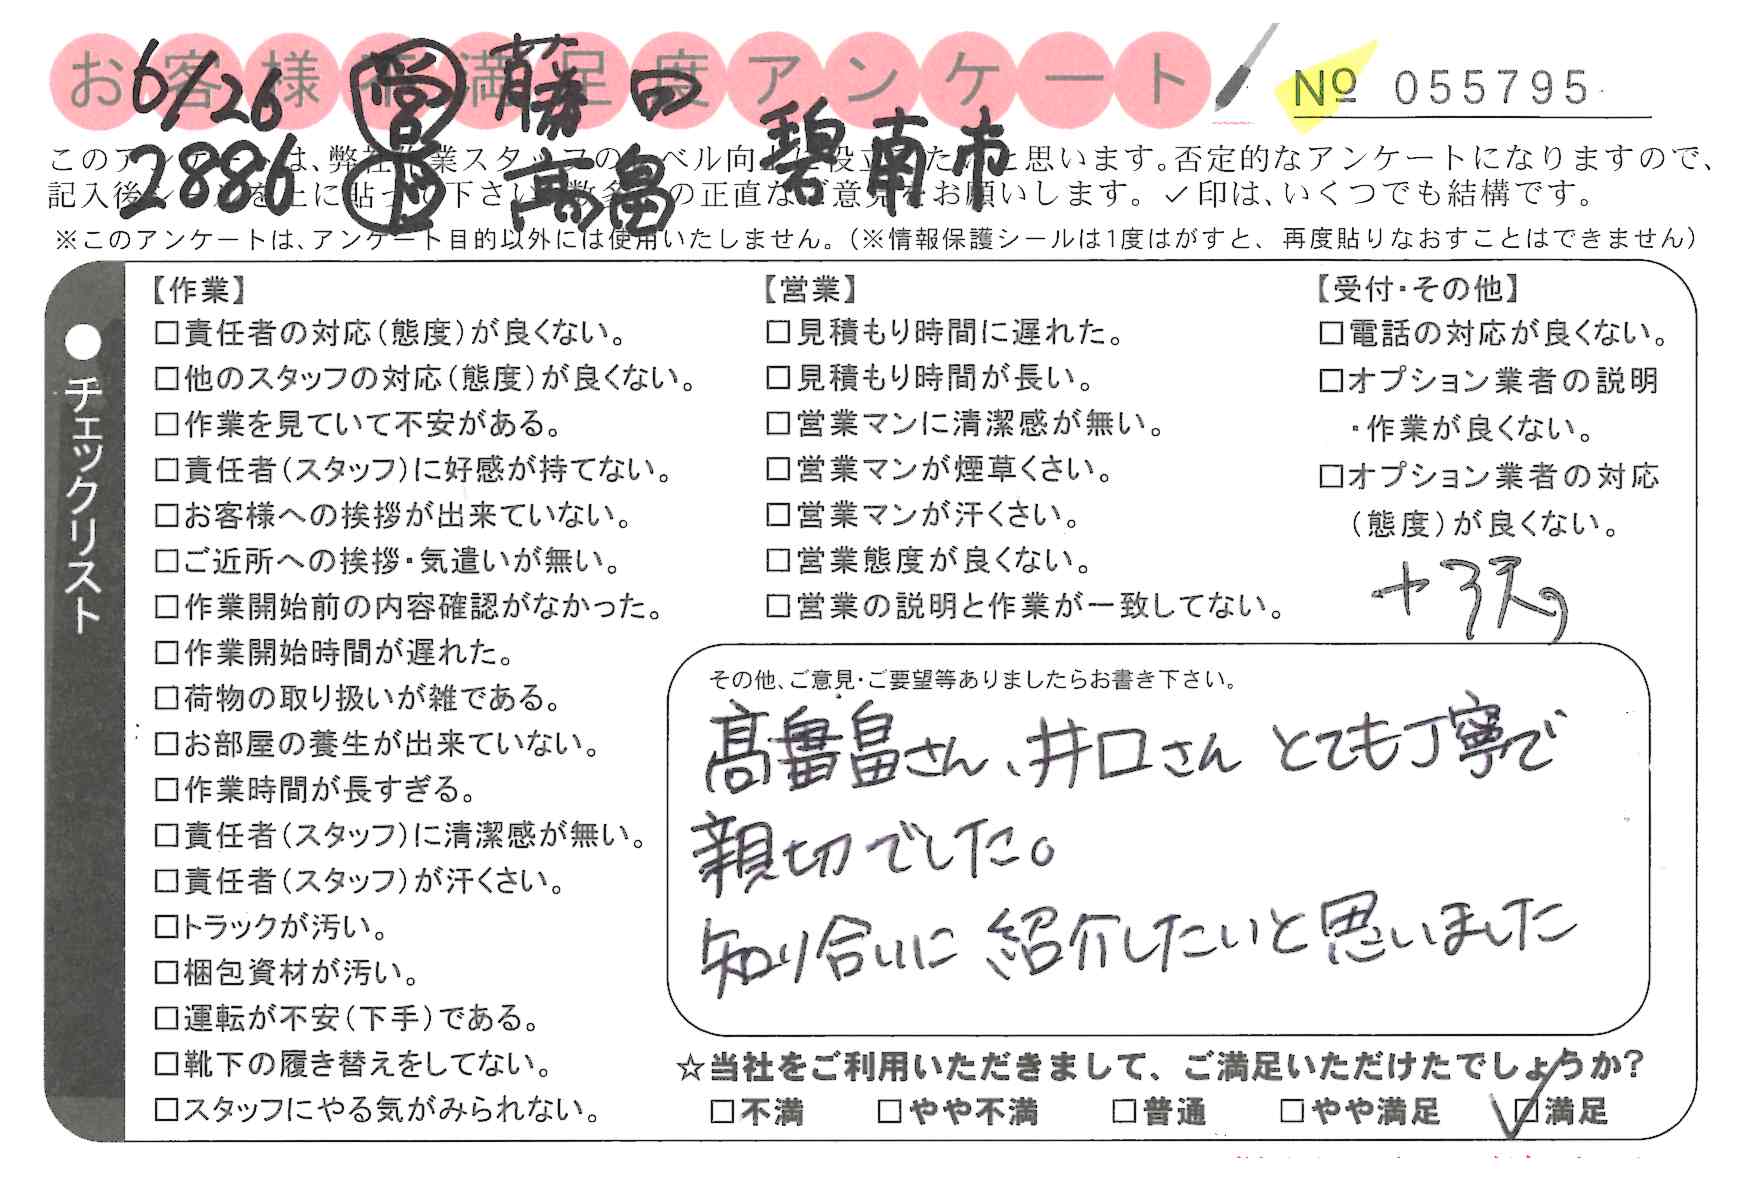 お客様満足度アンケート
No 055795
6/26 営 藤田
2886 作 高畠 碧南市
このアンケートは、弊社作業スタッフのレベル向上に役立てたいと思います。否定的なアンケートになりますので、
記入後シールを上に貼って下さい。数多くの正直なご意見をお願いします。✓印は、いくつでも結構です。
※このアンケートは、アンケート目的以外には使用いたしません。（※情報保護シールは1度はがすと、再度貼りなおすことはできません）
●チェックリスト
【作業】
□責任者の対応(態度)が良くない。
□他のスタッフの対応(態度)が良くない。
□作業を見ていて不安がある。
□責任者(スタッフ)に好感が持てない。
□お客様への挨拶が出来ていない。
□ご近所への挨拶・気遣いが無い。
□作業開始前の内容確認がなかった。
□作業開始時間が遅れた。
□荷物の取り扱いが雑である。
□お部屋の養生が出来ていない。
□作業時間が長すぎる。
□責任者(スタッフ)に清潔感が無い。
□責任者(スタッフ)が汗くさい。
□トラックが汚い。
□梱包資材が汚い。
□運転が不安(下手)である。
□靴下の履き替えをしてない。
□スタッフにやる気がみられない。
【営業】
□見積もり時間に遅れた。
□見積もり時間が長い。
□営業マンに清潔感が無い。
□営業マンが煙草くさい。
□営業マンが汗くさい。
□営業態度が良くない。
□営業の説明と作業が一致してない。
【受付・その他】
□電話の対応が良くない。
□オプション業者の説明
・作業が良くない。
□オプション業者の対応
(態度)が良くない。
その他、ご意見・ご要望等ありましたらお書き下さい。
高畠さん、井口さん とても丁寧で
親切でした。
知り合いに紹介したいと思いました
☆当社をご利用いただきまして、ご満足いただけたでしょうか?
□不満 □やや不満 □普通 □やや満足 ☑満足